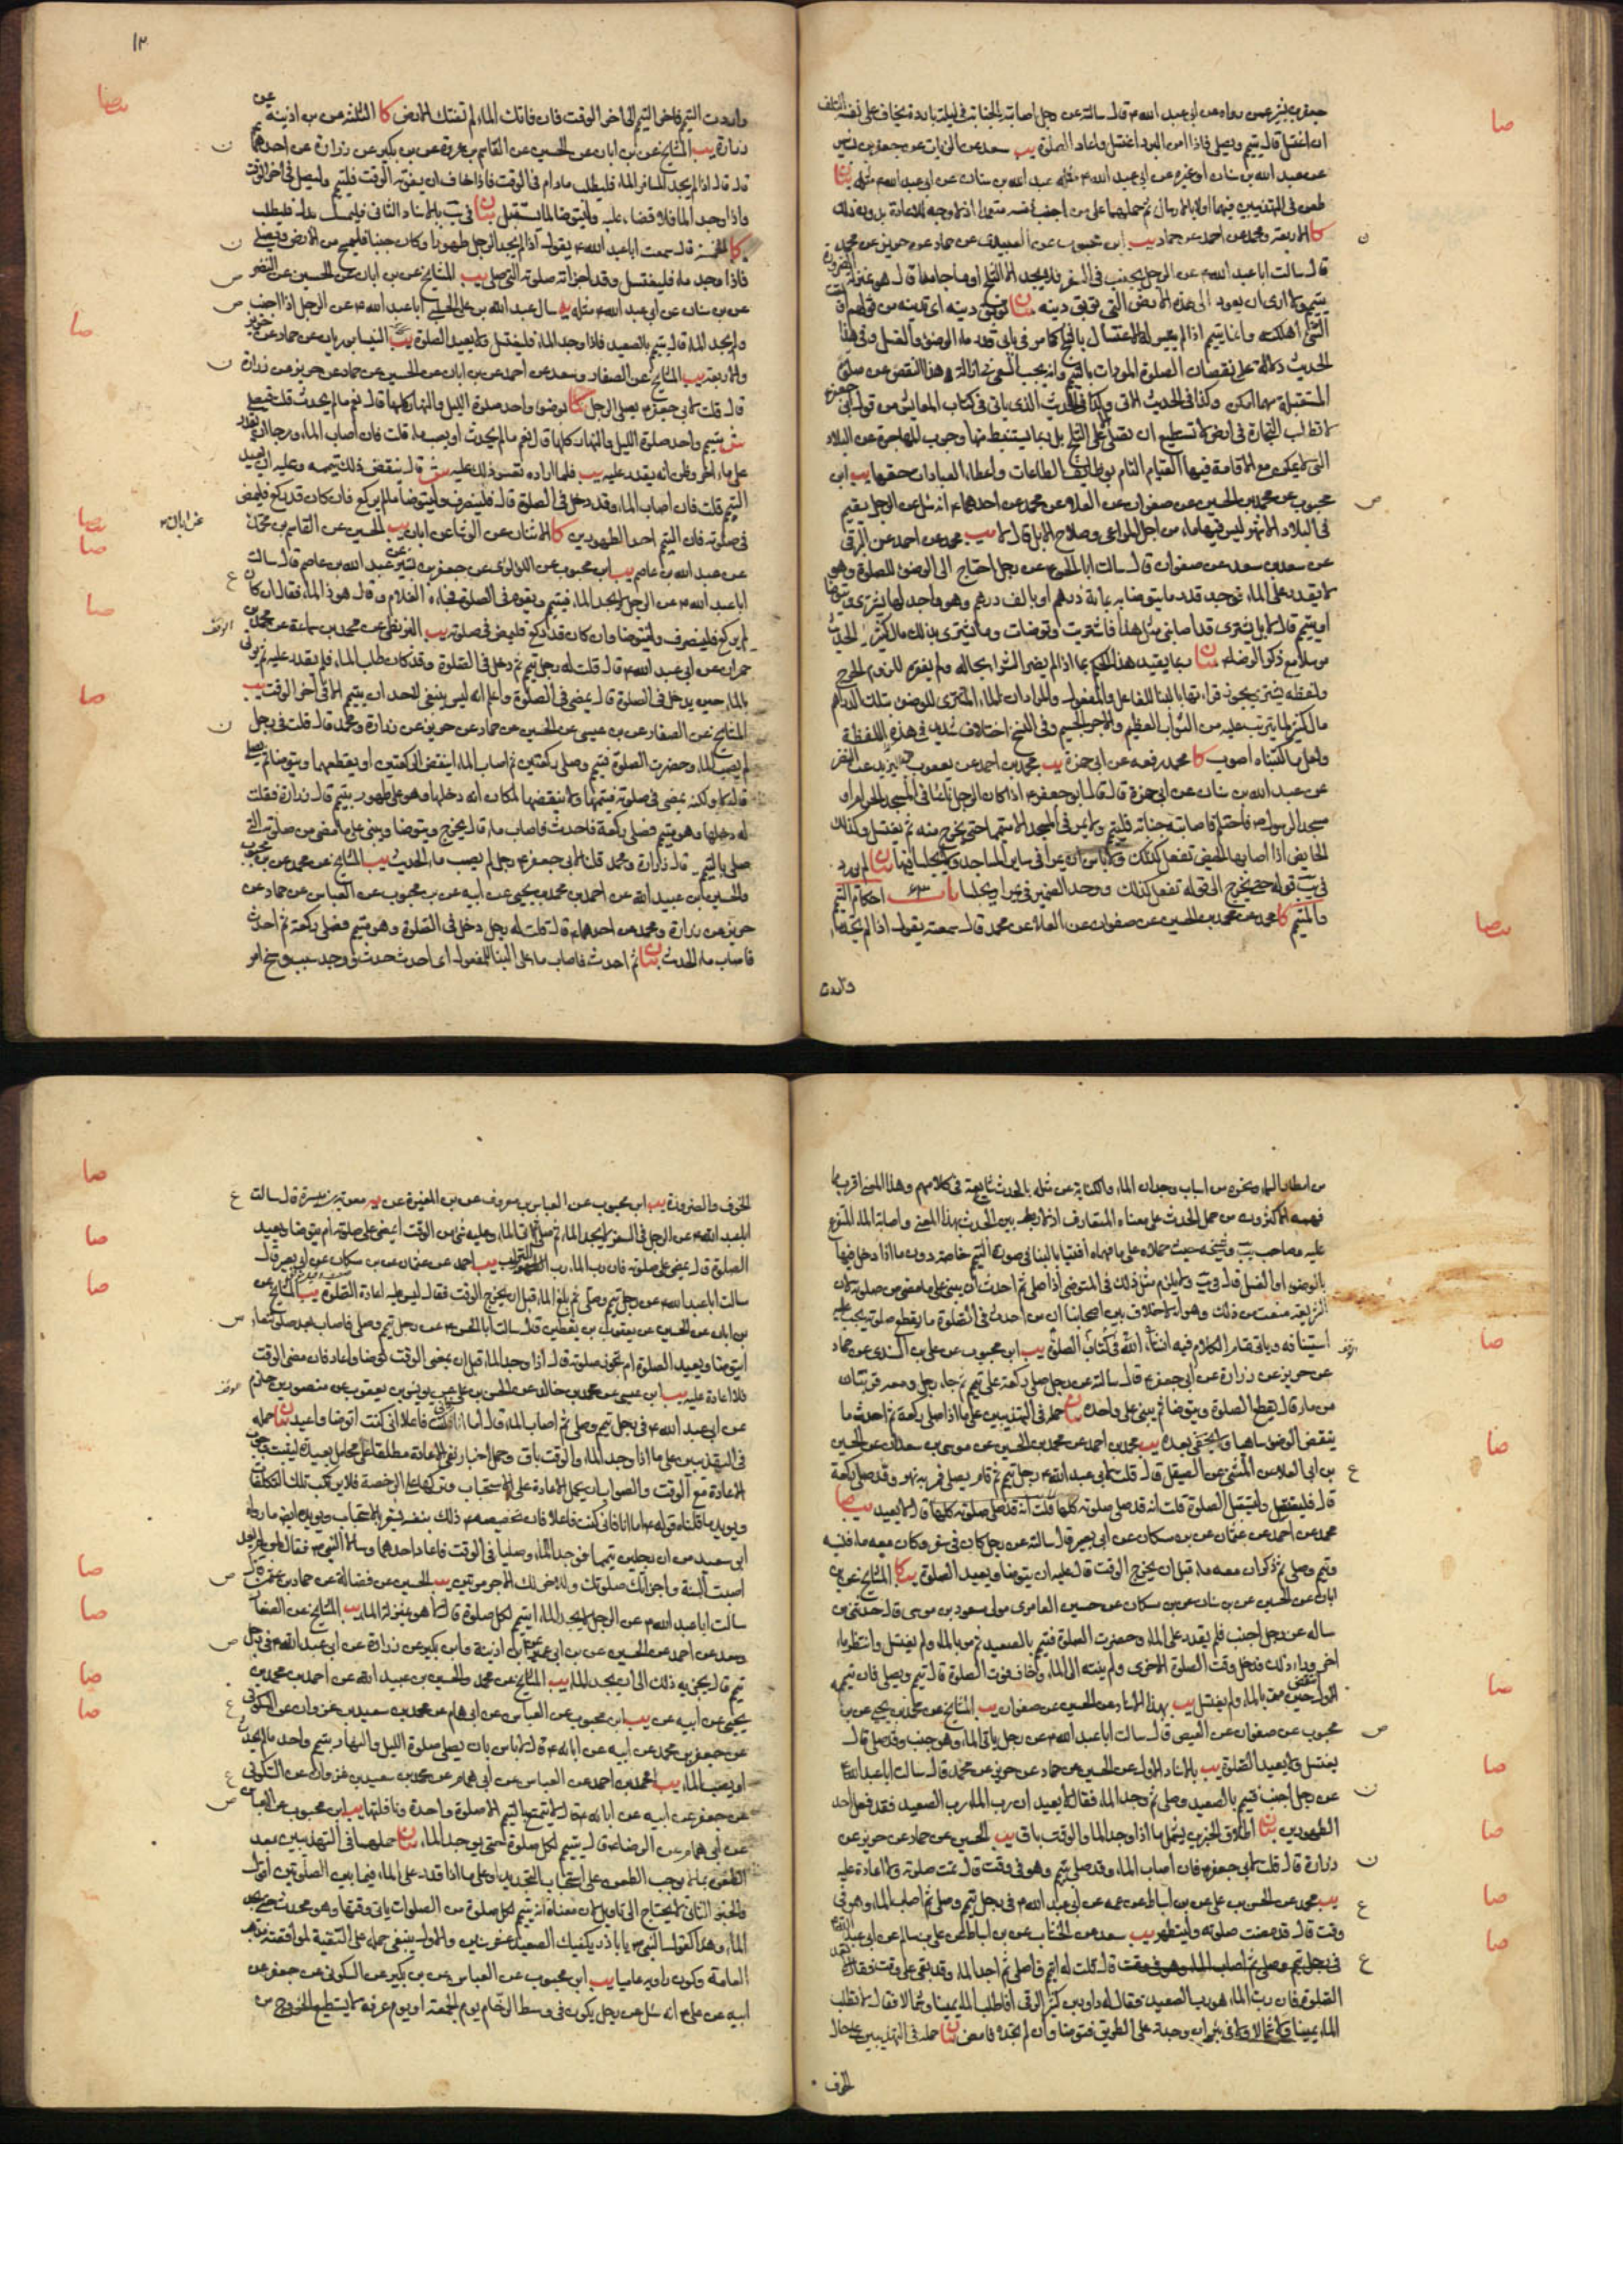 جعفر بن بشير عمن رواه عن ابى عبد الله ع قال سالته عن رجل اصابته الجنابة فى ليلة باردة يخاف على نفسه التلف
ان اغتسل قال يتيمم ويصلى فاذا امن البرد اغتسل واعاد الصلوة يب سعد عن الزيات عن جعفر بن بشير
عن عبد الله بن سنان او غيره عن ابى عبد الله ع مثله عبد الله بن سنان عن ابى عبد الله ع مثله بيان
طعن فى التهذيبين فيهما اولا بالارسال ثم حملهما على من اجنب نفسه متعمدا
كا الاربعة ومحمد عن احمد عن حماد يب ابن محبوب عن العبيدى عن حماد عن حريز عن محمد
قال سالت ابا عبد الله ع عن الرجل يجنب فى السفر فلا يجد الا الثلج او ماء جامدا قال هو بمنزلة الضرورة
يتيمم ولا ارى ان يعود الى هذه الارض التى توبق دينه بيان توبق دينه اى تهلكه من قولهم
الحديث دلالة على نقصان الصلوة الموداة بالتيمم وانه يجب السعى فى ازالة هذا النقص عن صلوته
المستقبلة مهما امكن وكذا فى الحديث الاتى وكذا فى الحديث الذى ياتى فى كتاب المعايش من قول ابى جعفر ع
لا تطلب التجارة فى ارض لا تستطيع ان تصلى على الثلج بل ربما يستنبط منها وجوب المهاجرة عن البلاد
التى لا يمكن مع الاقامة فيها القيام التام بوظايف الطاعات واعطاء العبادات حقها يب ابن
محبوب عن محمد بن الحسين عن صفوان عن العلا عن محمد عن احدهما ع انه سئل عن الرجل يقيم
فى البلاد الاشهر ليس فيها ماء من اجل المراعى وصلاح الابل قال لا يب محمد عن احمد عن البرقى
عن سعد بن سعد عن صفوان قال سالت ابا الحسن ع عن رجل احتاج الى الوضوء للصلوة وهو
لا يقدر على الماء فوجد قدر ما يتوضا به بمائة درهم او بالف درهم وهو واجد لها يشترى ويتوضا
او يتيمم قال لا بل يشترى قد اصابنى مثل هذا فاشتريت وتوضات وما يشترى بذلك مال كثير الحديث
مرسلا مع ذكر الرضا ع بيان ربما يقيد هذا الحكم بما اذا لم يضر الشرا بحاله ولم يفرم للزوم الحرج
ولفظة يشترى يجوز قراءتها بالبنا للفاعل والمفعول والمراد ان الماء المشترى للوضوء بتلك الدراهم
مال كثير لما يترتب عليه من الثواب العظيم والاجر الجسيم وفى النسخ اختلاف شديد فى هذه اللفظة
ولعل ما كتبناه اصوب كا محمد رفعه عن ابى حمزة يب محمد بن احمد عن يعقوب بن يزيد عن النضر
عن عبد الله بن سنان عن ابى حمزة قال قال ابو جعفر ع اذا كان الرجل نائما فى المسجد الحرام او
مسجد الرسول ص فاحتلم فاصابته جنابة فليتيمم ولا يمر فى المسجد الا متيمما حتى يخرج منه ثم يغتسل وكذلك
الحايض اذا اصابها الحيض تفعل كذلك ولا باس ان يمرا فى ساير المساجد ولا يجلسا فيها بيان لم يورد
فى يب قوله حتى يخرج الى قوله تفعل كذلك ووحد الضمير فى يمرا ويجلسا باب ٤٣ احكام التيمم
والمتيمم كا محمد عن محمد بن الحسين عن صفوان عن العلا عن محمد قال سمعته يقول اذا لم تجد ماء
واردت
١٣
واردت التيمم فاخر التيمم الى اخر الوقت فان فاتك الماء لم تفتك الارض كا الثلثة عن بن اذينة عن
زرارة يب المشايخ عن بن ابان عن الحسين عن القاسم بن عروة عن بن بكير عن زرارة عن احدهما ع
قال قال اذا لم يجد المسافر الماء فليطلب ما دام فى الوقت فاذا خاف ان يفوته الوقت فليتيمم وليصل فى اخر الوقت
واذا وجد الماء فلا قضاء عليه وليتوضا لما يستقبل بيان فى يب بالاسناد الثانى فليمسك بدل فليطلب
كا الخمسة قال سمعت ابا عبد الله ع يقول اذا لم يجد الرجل طهورا وكان جنبا فليمسح من الارض ويصلى
فاذا وجد ماء فليغتسل وقد اجزاته صلوته التى صلى يب المشايخ عن بن ابان عن الحسين عن النضر
عن بن سنان عن ابى عبد الله ع مثله يه سال عبد الله بن على الحلبى ابا عبد الله ع عن الرجل اذا اجنب
ولم يجد الماء قال يتيمم بالصعيد فاذا وجد الماء فليغتسل ولا يعيد الصلوة كا النيسابوريان عن حماد عن حريز
والاربعة يب المشايخ عن الصفار وسعد عن احمد عن بن ابان عن الحسين عن حماد عن حريز عن زرارة
قال قلت لابى جعفر ع يصلى الرجل كا بوضوء واحد صلوة الليل والنهار كلها قال نعم ما لم يحدث قلت فيصلى
ش بتيمم واحد صلوة الليل والنهار كلها قال نعم ما لم يحدث او يصب ماء قلت فان اصاب الماء ورجا ان يقدر
على ماء اخر وظن انه يقدر عليه يب فلما اراده تعسر ذلك عليه ش قال ينقض ذلك تيممه وعليه ان يعيد
التيمم قلت فان اصاب الماء وقد دخل فى الصلوة قال فلينصرف وليتوضا ما لم يركع فان كان قد ركع فليمض
فى صلوته فان التيمم احد الطهورين كا الاثنان عن الوشا عن ابان يب الحسين عن القاسم بن محمد
عن عبد الله بن عاصم يب ابن محبوب عن اللولوى عن جعفر بن بشير عن عبد الله بن عاصم قال سالت
ابا عبد الله ع عن الرجل لا يجد الماء فيتيمم ويقوم فى الصلوة فجاء الغلام وقال هو ذا الماء فقال ان كان
لم يركع فلينصرف وليتوضا وان كان قد ركع فليمض فى صلوته يب البزنطى عن محمد بن سماعة عن محمد بن
حمران عن ابى عبد الله ع قال قلت له رجل تيمم ثم دخل فى الصلوة وقد كان طلب الماء فلم يقدر عليه ثم يوتى
بالماء حين يدخل فى الصلوة قال يمضى فى الصلوة واعلم انه ليس ينبغى لاحد ان يتيمم الا فى اخر الوقت يب
المشايخ عن الصفار عن بن عيسى عن الحسين عن حماد عن حريز عن زرارة ومحمد قال قلت فى رجل
لم يصب الماء وحضرت الصلوة فتيمم وصلى ركعتين ثم اصاب الماء اينقض الركعتين او يقطعهما ويتوضا ثم يصلى
قال لا ولكنه يمضى فى صلوته فيتمها ولا ينقضها لمكان انه دخلها وهو على طهور بتيمم قال زرارة فقلت
له دخلها وهو متيمم فصلى ركعة فاحدث فاصاب ماء قال يخرج ويتوضا ويبنى على ما مضى من صلوته التى
صلى بالتيمم قال زرارة ومحمد قلنا لابى جعفر ع رجل لم يصب ماء الحديث يب المشايخ عن محمد عن بن محبوب
والحسين بن عبيد الله عن احمد بن محمد بن يحيى عن ابيه عن بن محبوب عن العباس عن حماد عن
حريز عن زرارة ومحمد عن احدهما ع قال قلت له رجل دخل فى الصلوة وهو متيمم فصلى ركعة ثم احدث
فاصاب ماء الحديث بيان ثم احدث فاصاب ماء على البنا للمفعول اى احدث حدث ووجد سبب وسنح امر
من امطار السماء ونحوه من اسباب وجدان الماء والكناية عن مثله بالحدث شايعة فى كلامهم وهذا المعنى اقرب مما
فهمه الاكثرون من حمل الحدث على معناه المتعارف اذ لا ربط بين الحدث بهذا المعنى واصابة الماء المتفرع
عليه وصاحب يب وشيخه حيث حملاه على ما فهماه افتيا بالبنا فى صورة التيمم خاصة دون ما اذا دخل فيها
بالوضوء او الغسل قال فى يب ولا يلزم مثل ذلك فى المتوضى اذا صلى ثم احدث ان يبنى على ما مضى من صلوته لان
الشريعة منعت من ذلك وهو انه لا خلاف بين اصحابنا ان من احدث فى الصلوة ما يقطع صلوته يجب عليه
استينافه وياتى تمام الكلام فيه ان شاء الله فى كتاب الصلوة يب ابن محبوب عن على بن السندى عن حماد
عن حريز عن زرارة عن ابى جعفر ع قال سالته عن رجل صلى ركعة على تيمم ثم جاء رجل ومعه قربتان
من ماء قال يقطع الصلوة ويتوضا ثم يبنى على واحدة بيان حمله فى التهذيبين على ما اذا صلى ركعة ثم احدث ما
ينقض الوضوء ساهيا ولا يخفى بعده يب محمد بن احمد عن محمد بن الحسين عن موسى بن سعدان عن الحسين
بن ابى العلا عن المثنى عن الصيقل قال قلت لابى عبد الله ع رجل تيمم ثم قام يصلى فمر به نهر وقد صلى ركعة
قال فليغتسل وليستقبل الصلوة قلت انه قد صلى صلوته كلها قال لا يعيد يب صا
محمد عن احمد عن عثمان عن بن مسكان عن ابى بصير قال سالته عن رجل كان فى سفر وكان معه ماء فنسيه
وتيمم وصلى ثم ذكر ان معه ماء قبل ان يخرج الوقت قال عليه ان يتوضا ويعيد الصلوة يب كا المشايخ عن بن
ابان عن الحسين عن بن سنان عن بن مسكان عن حسين العامرى مولى مسعود بن موسى قال حدثنى من
ساله عن رجل اجنب فلم يقدر على الماء وحضرت الصلوة فتيمم بالصعيد ثم مر بالماء ولم يغتسل وانتظر ماء
اخر وراء ذلك فدخل وقت الصلوة الاخرى ولم ينته الى الماء وخاف فوت الصلوة قال يتيمم ويصلى فان تيممه
الاول انتقض حين مر بالماء ولم يغتسل يب بهذا الاسناد عن الحسين عن صفوان يب المشايخ عن محمد بن يحيى عن بن
محبوب عن صفوان عن العيص قال سالت ابا عبد الله ع عن رجل ياتى الماء وهو جنب وقد صلى قال
يغتسل ولا يعيد الصلوة يب بالاسناد الاول عن الحسين عن حماد عن حريز عن محمد قال سالت ابا عبد الله ع
عن رجل اجنب فتيمم بالصعيد وصلى ثم وجد الماء فقال لا يعيد ان رب الماء رب الصعيد فقد فعل احد
الطهورين بيان اطلاق الخبرين يشمل ما اذا وجد الماء والوقت باق يب الحسين عن حماد عن حريز عن
زرارة قال قلت لابى جعفر ع فان اصاب الماء وقد صلى بتيمم وهو فى وقت قال تمت صلوته ولا اعادة عليه
يب محمد عن الحسن بن على عن بن اسباط عن عمه عن ابى عبد الله ع فى رجل تيمم وصلى ثم اصاب الماء وهو فى
وقت قال قد مضت صلوته وليتطهر يب سعد عن الخشاب عن بن اسباط عن على بن سالم عن ابى عبد الله ع
قال قلت له اتيمم فاصلى ثم اجد الماء وقد بقى على وقت فقال لا تعد
الصلوة فان رب الماء هو رب الصعيد فقال له داود بن كثير الرقى افاطلب الماء يمينا وشمالا فقال لا تطلب
الماء يمينا ولا شمالا ولا فى بئر ان وجدته على الطريق فتوضا وان لم تجده فامض بيان حمله فى التهذيبين على حال
الخوف
الخوف والضرورة يب ابن محبوب عن العباس بن معروف عن بن المغيرة عن معوية بن ميسرة قال سالت
ابا عبد الله ع عن الرجل فى السفر لا يجد الماء ثم صلى ثم اتى الماء وعليه شىء من الوقت ايمضى على صلوته ام يتوضا ويعيد
الصلوة قال يمضى على صلوته فان رب الماء رب التراب يب احمد عن عثمان عن بن مسكان عن ابى بصير قال
سالت ابا عبد الله ع عن رجل تيمم وصلى ثم بلغ الماء قبل ان يخرج الوقت فقال ليس عليه اعادة الصلوة يب المشايخ عن
بن ابان عن الحسين عن يعقوب بن يقطين قال سالت ابا الحسن ع عن رجل تيمم وصلى فاصاب بعد صلوته ماء
ايتوضا ويعيد الصلوة ام تجوز صلوته قال اذا وجد الماء قبل ان يمضى الوقت توضا واعاد فان مضى الوقت
فلا اعادة عليه يب ابن عيسى عن محمد بن خالد عن الحسن بن على عن يونس بن يعقوب عن منصور بن حازم
عن ابى عبد الله ع فى رجل تيمم وصلى ثم اصاب الماء قال اما انا فكنت فاعلا انى كنت اتوضا واعيد بيان حمله
فى التهذيبين على ما اذا وجد الماء والوقت باق وحمل اخبار نفى الاعادة مطلقا على محامل بعيدة ليثبت وجوب
الاعادة مع الوقت والصواب ان يحمل الاعادة على الاستحباب وتركها على الرخصة فلا يرتكب تلك التكلفات
ويويد ما قلناه قوله ع اما انا فانى كنت فاعلا فان تخصيصه ع ذلك بنفسه يشعر بالاستحباب ويويده ايضا ما رواه
ابى سعيد من ان رجلين تيمما فوجدا الماء وصليا فى الوقت فاعاد احدهما وسالا النبى ص فقال لمن لم يعد
اصبت السنة واجزاتك صلوتك وللاخر لك الاجر مرتين يب الحسين عن فضالة عن حماد بن عثمن قال
سالت ابا عبد الله ع عن الرجل لا يجد الماء ايتيمم لكل صلوة قال لا هو بمنزلة الماء يب المشايخ عن الصفار
وسعد عن احمد عن الحسين عن بن ابى عمير عن ابن اذينة وابن بكير عن زرارة عن ابى عبد الله ع فى رجل
تيمم قال يجزيه ذلك الى ان يجد الماء يب المشايخ عن محمد والحسين بن عبيد الله عن احمد بن محمد بن
يحيى عن ابيه عن يب ابن محبوب عن العباس عن ابى همام عن محمد بن سعيد بن غزوان عن السكونى
عن جعفر بن محمد عن ابيه عن ابائه ع قال لا باس بان يصلى صلوة الليل والنهار بتيمم واحد ما لم يحدث
او يصب الماء يب محمد بن احمد عن العباس عن ابى همام عن محمد بن سعيد بن غزوان عن السكونى
عن جعفر عن ابيه عن ابائه ع قال لا يتمتع بالتيمم الا صلوة واحدة ونافلتها يب ابن محبوب عن العباس
عن ابى همام عن الرضا ع قال يتيمم لكل صلوة حتى يوجد الماء بيان حملهما فى التهذيبين بعد
الطعن بما لا يوجب الطعن على استحباب التجديد او على ما اذا قدر على الماء فيما بين الصلوتين اقول
والخبر الثانى لا يحتاج الى تاويل لان معناه انه يتيمم لكل صلوة من الصلوات ياتى وقتها وهو محدث حتى يجد
الماء وهذا كقول النبى ص يا باذر يكفيك الصعيد عشر سنين والاول ينبغى حمله على التقية لموافقته مذهب
العامة وكون راويه عاميا يب ابن محبوب عن العباس عن بن بكير عن السكونى عن جعفر عن
ابيه عن على ع انه سئل عن رجل يكون فى وسط الزحام يوم الجمعة او يوم عرفة لا يستطيع الخروج من